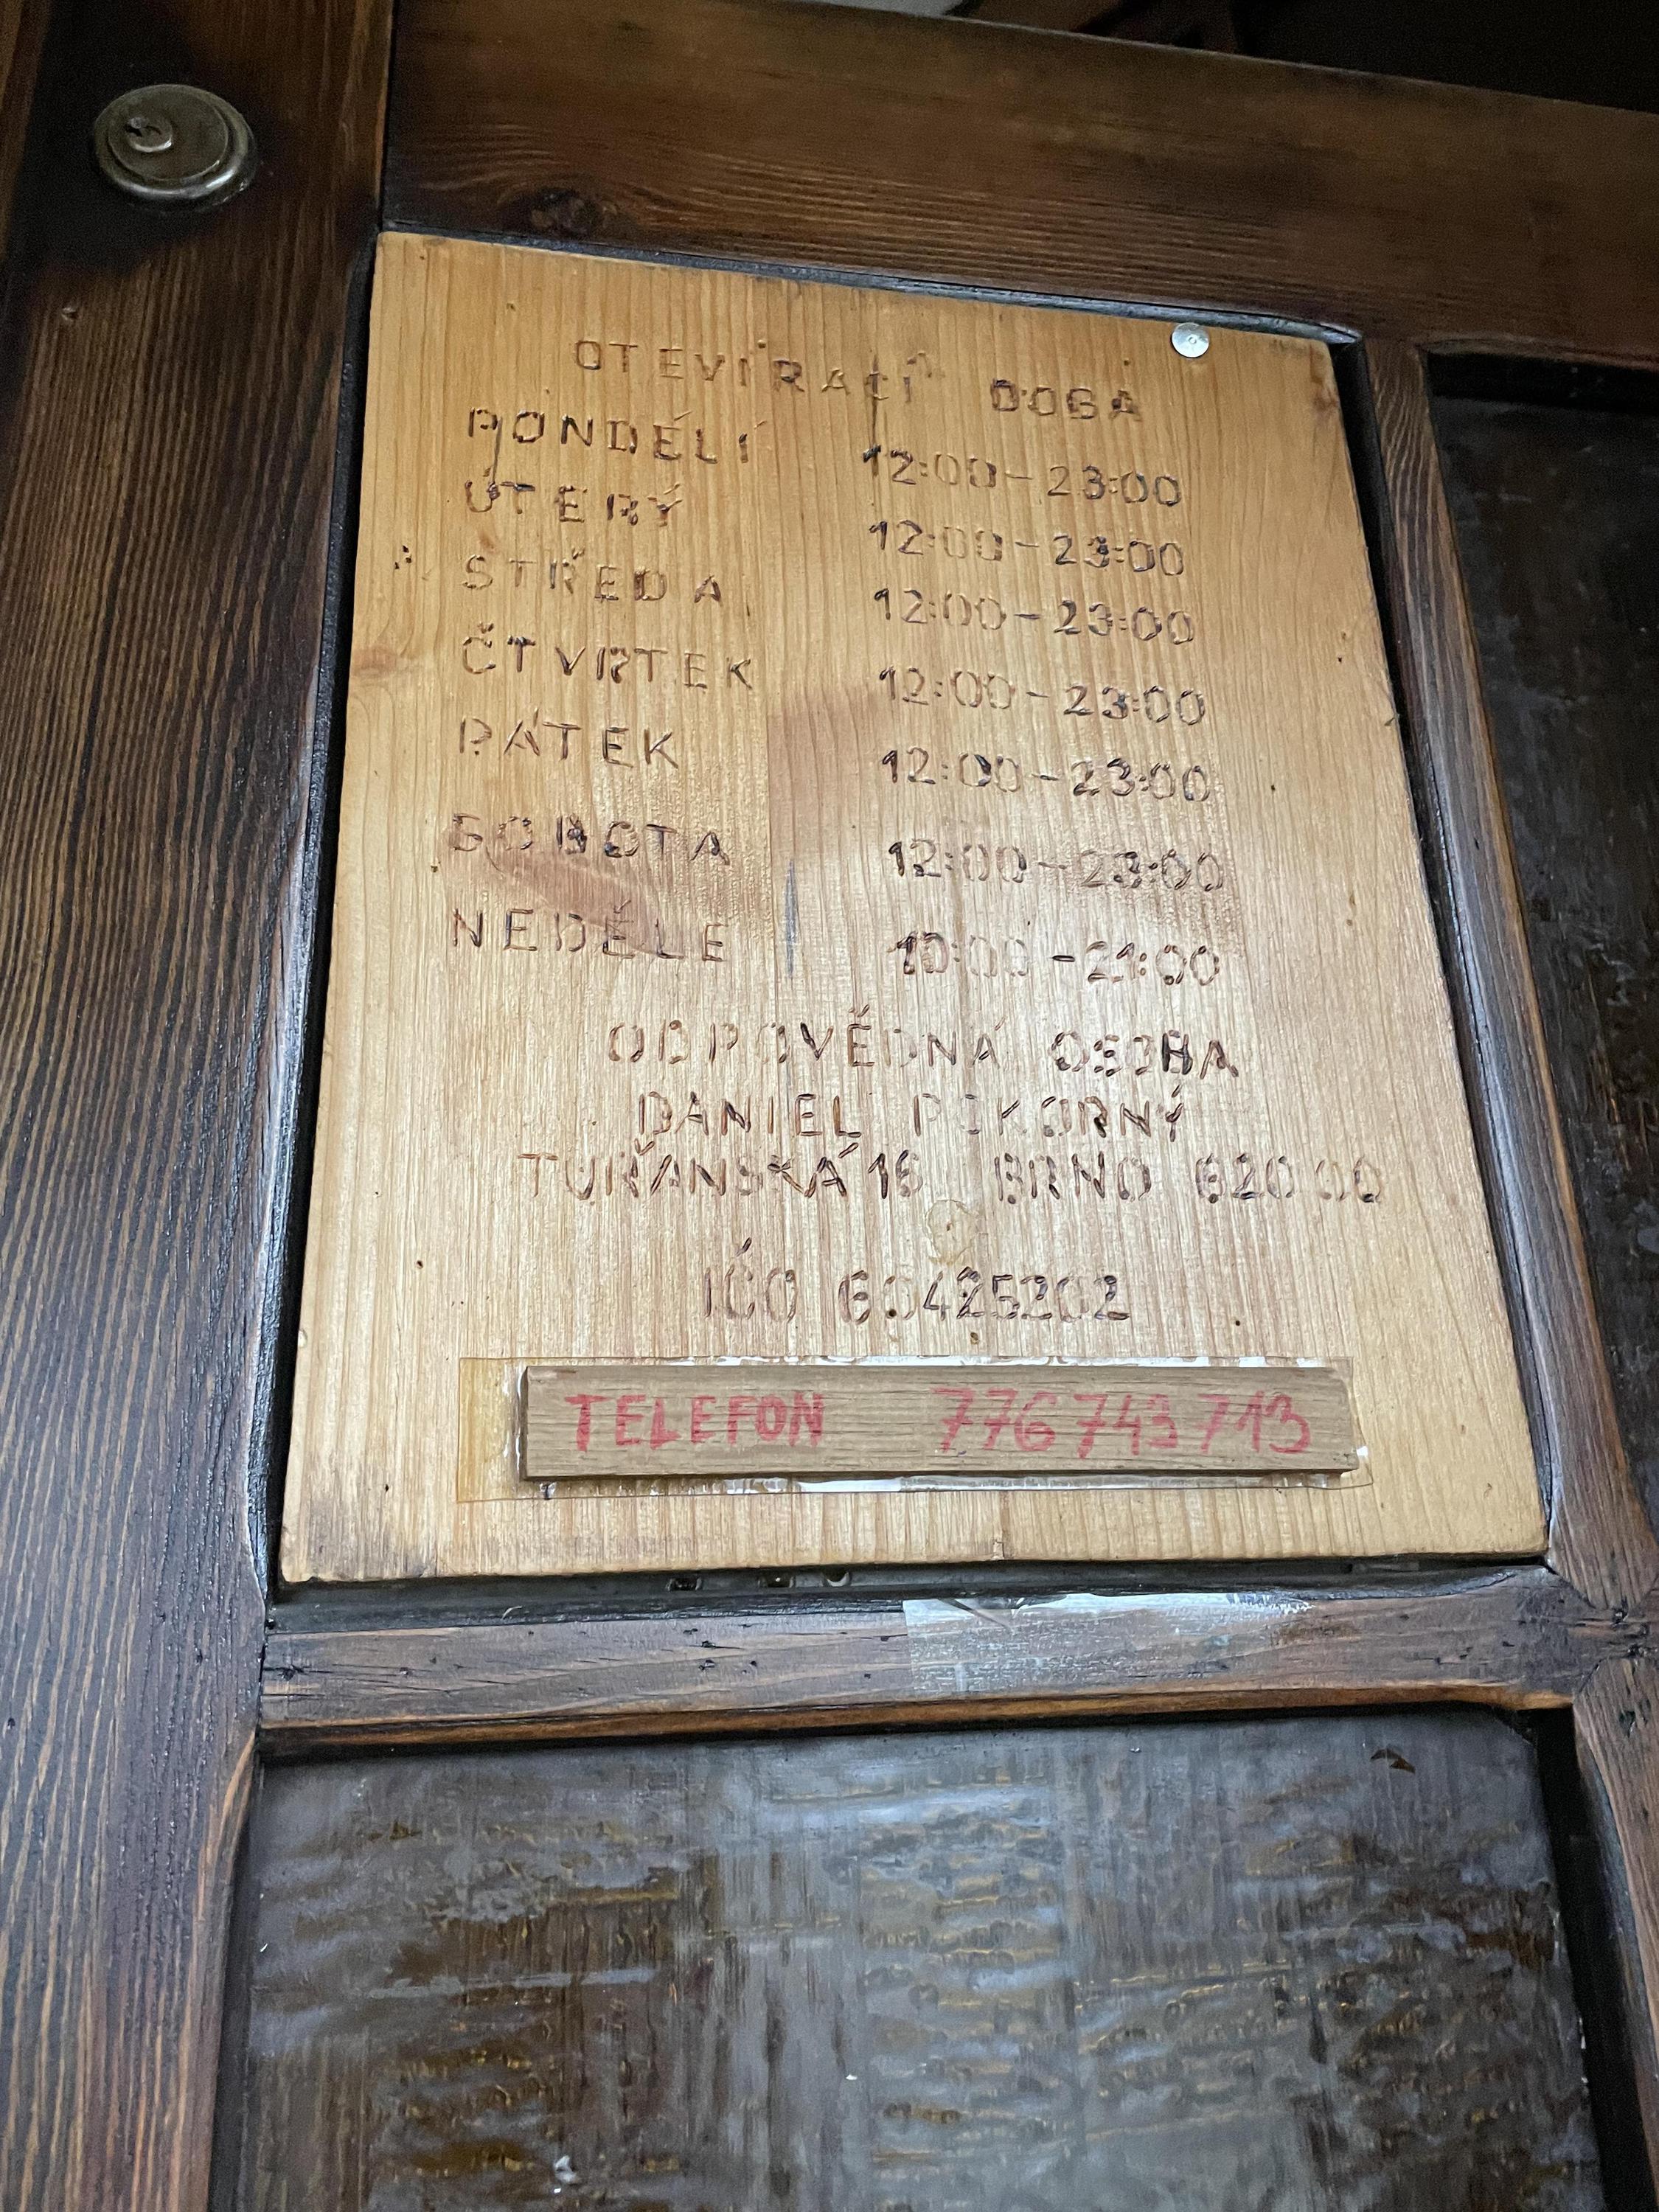 OTEVÍRACÍ DOBA
PONDĚLÍ 12:00-23:00
ÚTERÝ 12:00-23:00
STŘEDA 12:00-23:00
ČTVRTEK 12:00-23:00
PÁTEK 12:00-23:00
SOBOTA 12:00-23:00
NEDĚLE 10:00-21:00
ODPOVĚDNÁ OSOBA
DANIEL POKORNÝ
TUŘANSKÁ 16 BRNO 620 00
IČO 60425202
TELEFON 776 743 713